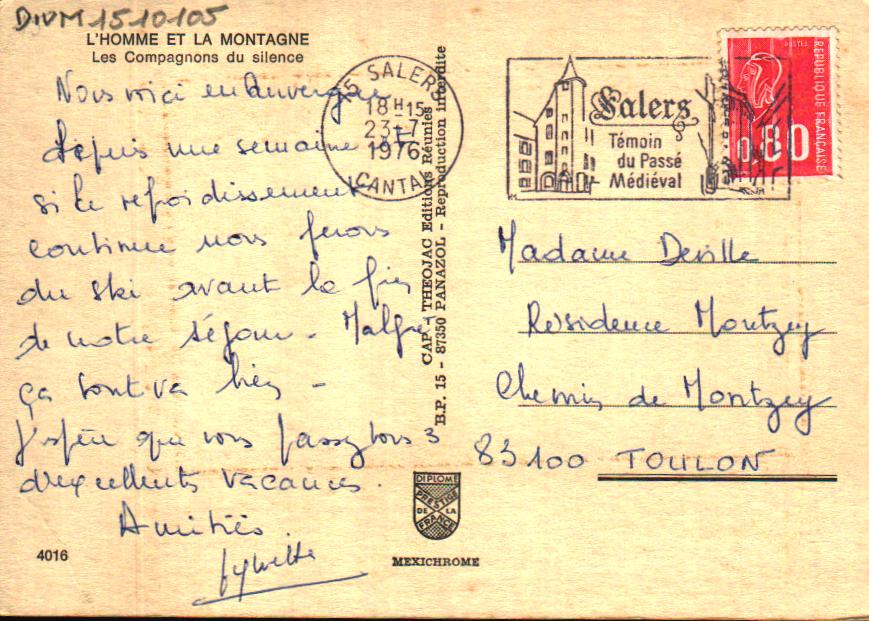 DIVM 1510105
L'HOMME ET LA MONTAGNE
Les Compagnons du silence
Nous voici en Auvergne
depuis une semaine et
si le refroidissement
continue nous ferons
du ski avant la fin
de notre séjour. Malgré
ça tout va bien -
J'espère que vous passez tous 3
d'excellentes vacances.
Amitiés
Sylvette
4016
15 SALERS
18 H 15
23-7
1976
CANTAL
CAP - THEOJAC Editions Réunies
B.P. 15 - 87350 PANAZOL - Reproduction interdite
DIPLOME
PRESTIGE
DE LA
FRANCE
MEXICHROME
Salers
Témoin
du Passé
Médiéval
POSTES
REPUBLIQUE FRANÇAISE
0.80
Madame Deville
Résidence Montzey
Chemin de Montzey
83100 TOULON